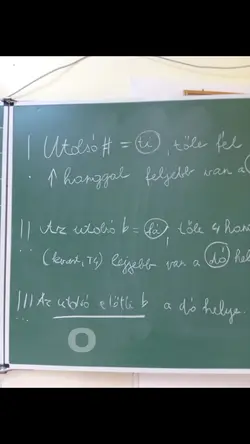 I Utolsó # = ti, tőle fél
↑ hanggal feljebb van a
II Az utolsó b = fá, tőle 4 hang
lejjebb van a dó hel
III Az utolsó előtti b a dó helye.